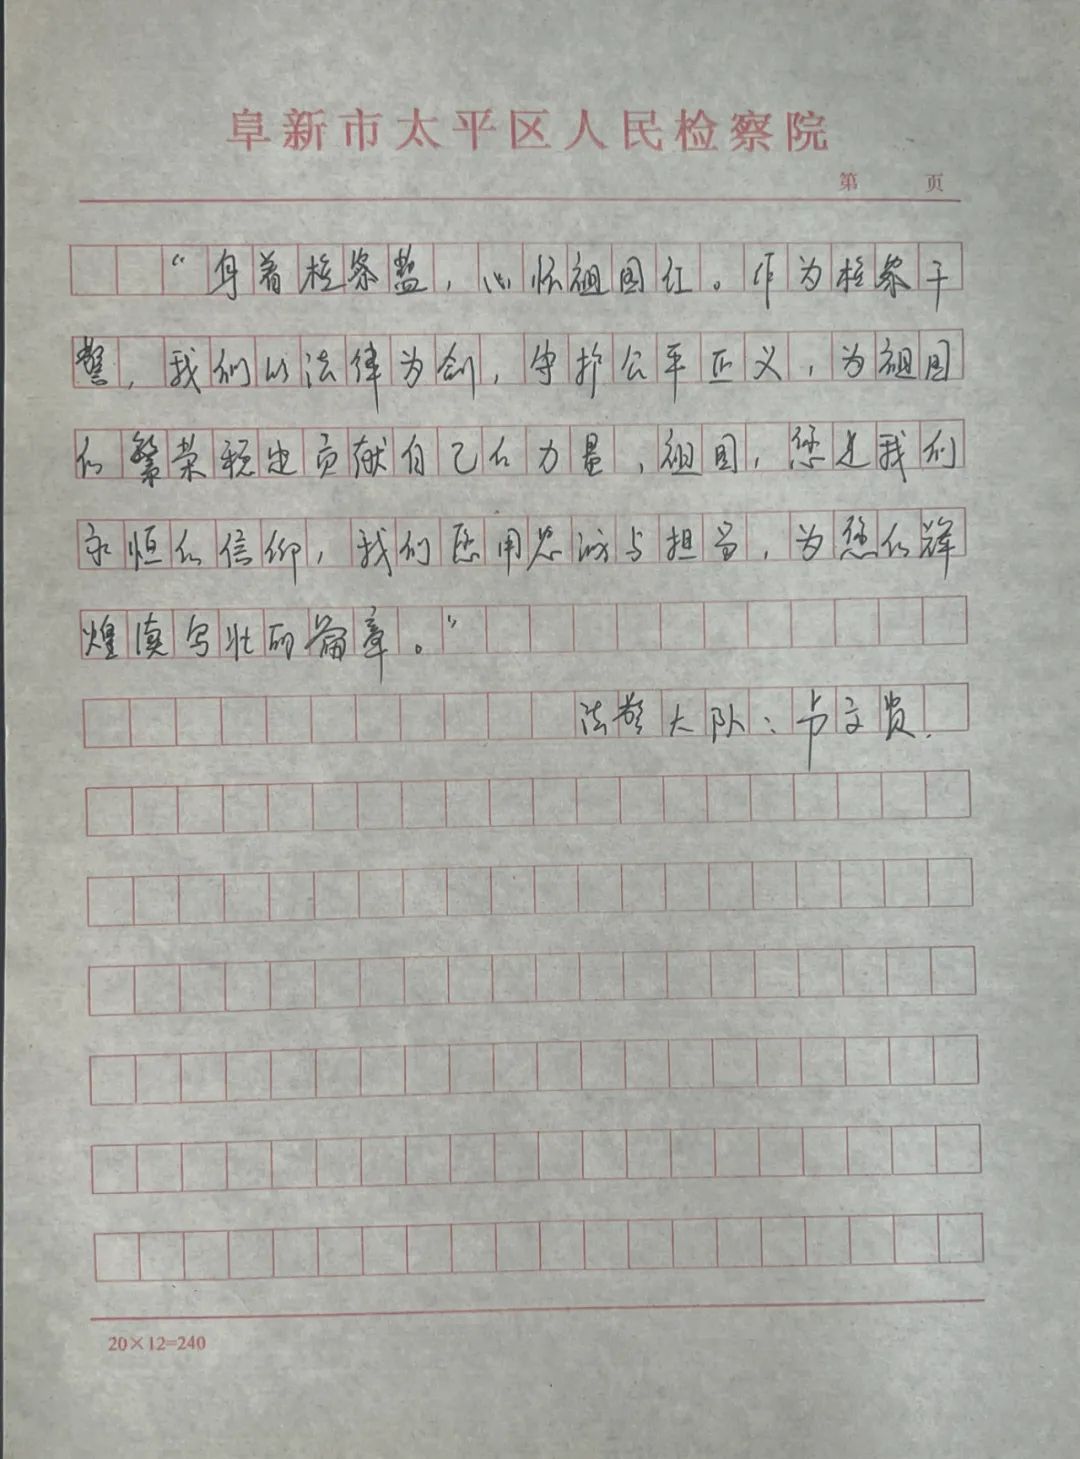 阜新市太平区人民检察院
第 页
“身着检察蓝,心怀祖国红。作为检察干
警,我们以法律为剑,守护公平正义,为祖国
的繁荣稳定贡献自己的力量,祖国,您是我们
永恒的信仰,我们愿用忠诚与担当,为您的辉
煌谱写壮丽的篇章。”
法警大队:卢文贤.
20×12=240